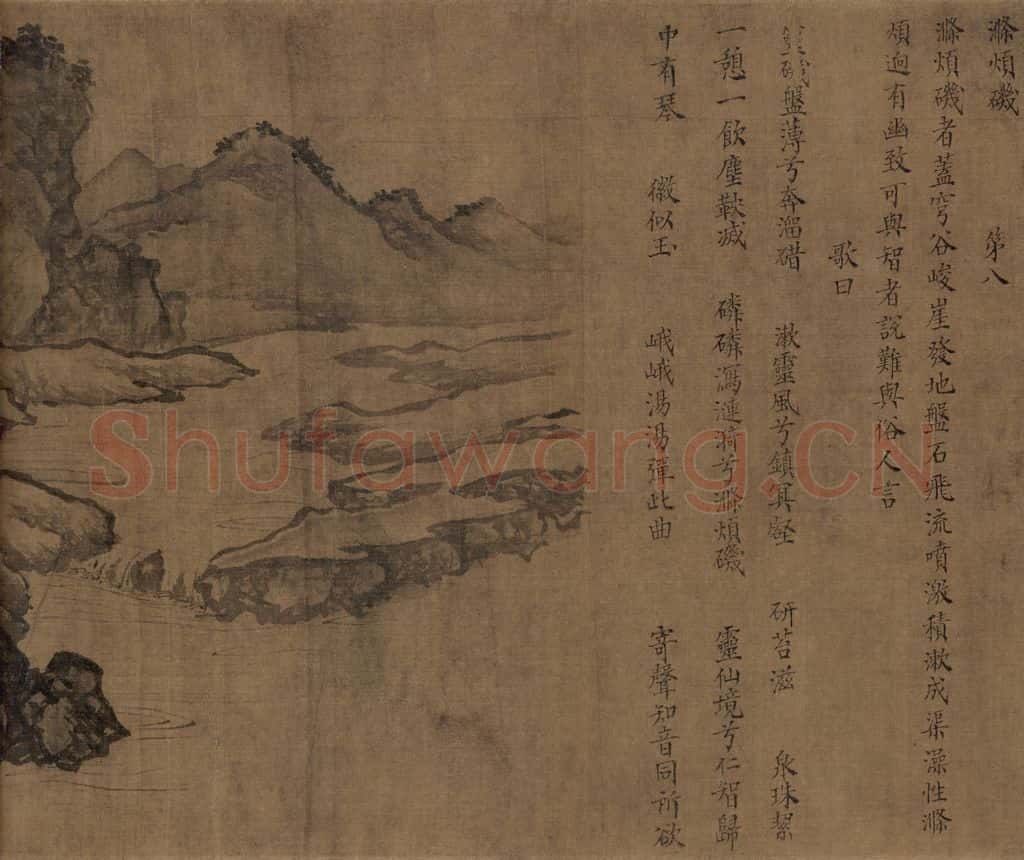 滌煩磯 第八
滌煩磯者蓋穹谷峻崖發地盤石飛流噴激積漱成渠澡性滌
煩迥有幽致可與智者說難與俗人言
歌曰
磯盤薄兮奔溜錯 漱靈風兮鎮冥壑 研苔滋 泉珠絜
一憩一飲塵歊滅 磷磷瀉漣漪兮滌煩磯 靈仙境兮仁智歸
中有琴 徽似玉 峨峨湯湯彈此曲 寄聲知音同所欲
Shufawang.CN